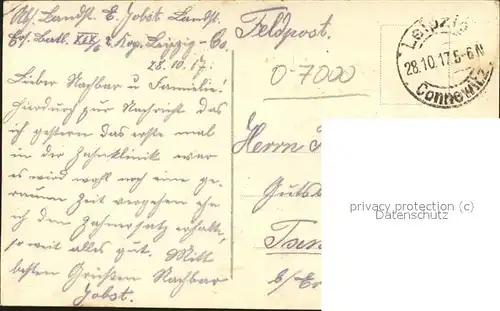 Abs. Landst. E. Jobst Landst.
Ers. Batl. XIX/6 2. Kop. Leipzig-Co.
28.10.17.
Lieber Nachbar u Familie!
Hiardurch zur Nachricht das
ich gestern das erste mal
in die Zahnklinik war
es wird wohl noch eine ge-
raume Zeit vergehen ehe
ich den Zahnersatz erhalte,
so weit alles gut. Mitt
besten Grüßen Nachbar
Jobst.
Feldpost.
0-7000
Leipzig
28.10.17.5-6N
Connewitz
Herrn
Guts
b/Er
privacy protection (c)
Datenschutz